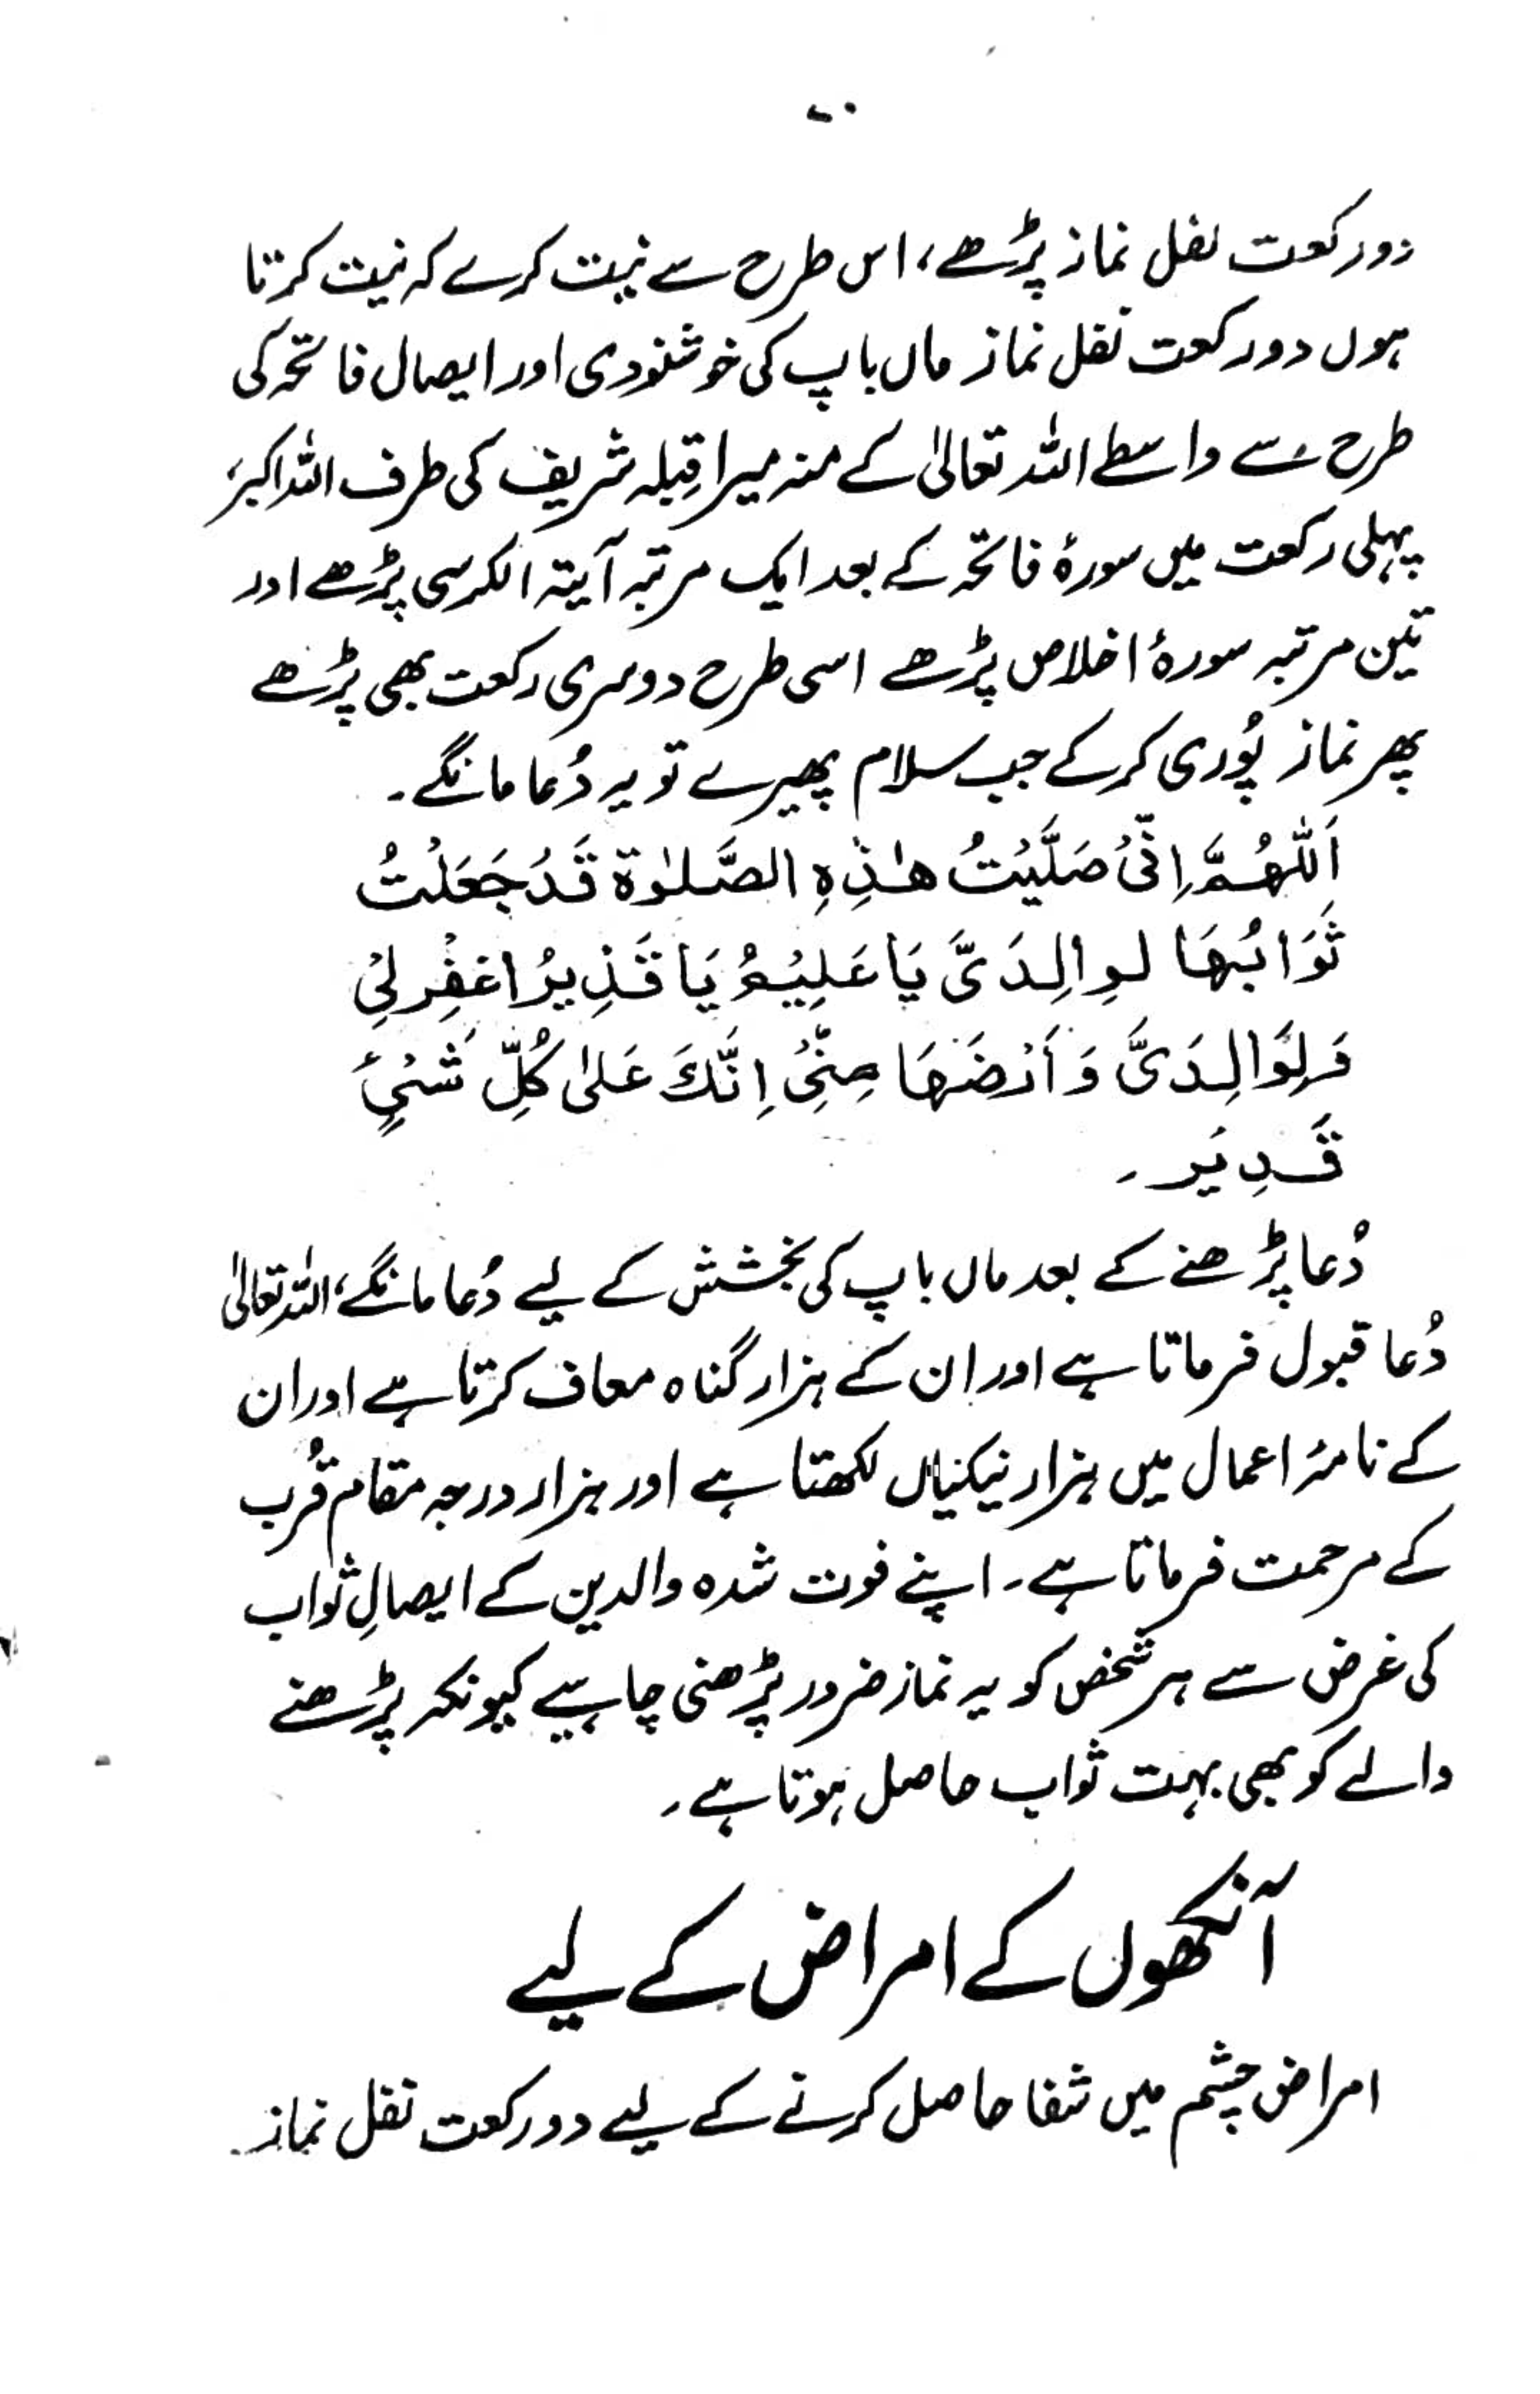 ۷۰
دو رکعت نفل نماز پڑھے، اس طرح سے نیت کرے کہ نیت کرتا
ہوں دو رکعت نفل نماز ماں باپ کی خوشنودی اور ایصال فاتحہ کی
طرح سے واسطے اللہ تعالیٰ کے منہ میرا قبلہ شریف کی طرف اللہ اکبر،
پہلی رکعت میں سورۂ فاتحہ کے بعد ایک مرتبہ آیتہ الکرسی پڑھے اور
تین مرتبہ سورۂ اخلاص پڑھے اسی طرح دوسری رکعت بھی پڑھے
پھر نماز پُوری کرکے جب سلام پھیرے تو یہ دُعا مانگے۔
اَللّٰهُمَّ اِنِّیْ صَلَّیْتُ هٰذِهِ الصَّلٰوةَ قَدْ جَعَلْتُ
ثَوَابُهَا لِوالِدَیَّ یَا عَلِیْمُ یَا قَدِیرُ اغفِرْلِیْ
وَلِوَالِدَیَّ وَاَرْضَهَا مِنِّیْ اِنَّكَ عَلیٰ كُلِّ شَیْءٍ
قَدِیَر۔
دُعا پڑھنے کے بعد ماں باپ کی بخشش کے لیے دُعا مانگے، اللہ تعالیٰ
دُعا قبول فرماتا ہے اور ان کے ہزار گناہ معاف کرتا ہے اور ان
کے نامۂ اعمال میں ہزار نیکیاں لکھتا ہے اور ہزار درجہ مقام قُرب
کے مرحمت فرماتا ہے۔ اپنے فوت شدہ والدین کے ایصالِ ثواب
کی غرض سے ہر شخص کو یہ نماز ضرور پڑھنی چاہیے کیونکہ پڑھنے
والے کو بھی بہت ثواب حاصل ہوتا ہے۔
آنکھوں کے امراض کے لیے
امراض چشم میں شفا حاصل کرنے کے لیے دو رکعت نفل نماز